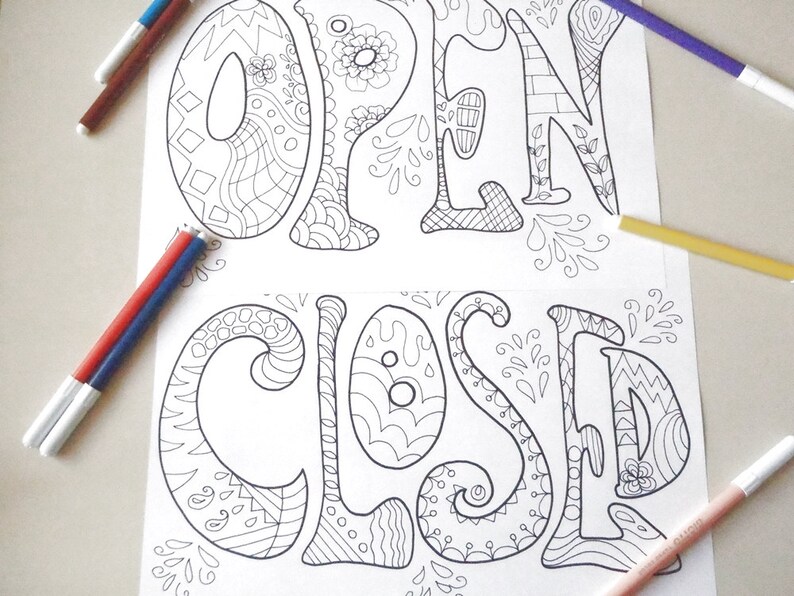 OPEN
CLOSED